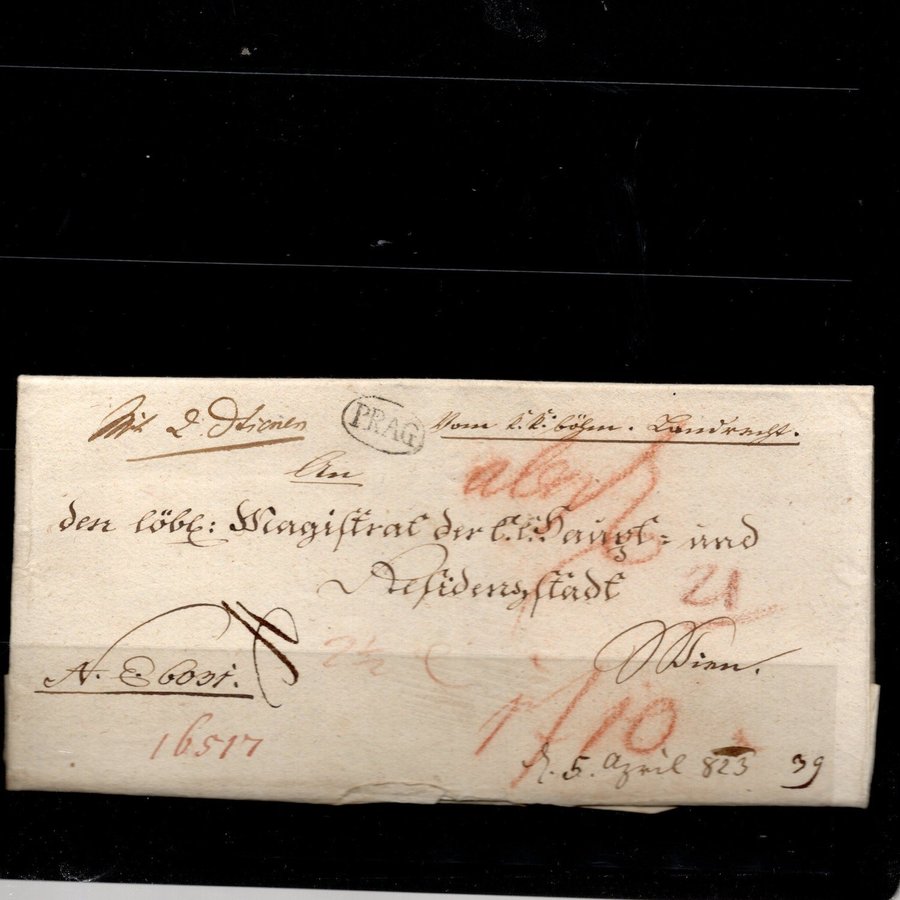 Mit 2
PRAG
Vom k: k: böhm. Landrecht.
An
den löbl: Magistrat der k. k. Haupt = und
Residenzstadt
21
Wien.
N. E 6031.
10
16517
5. April 823
39